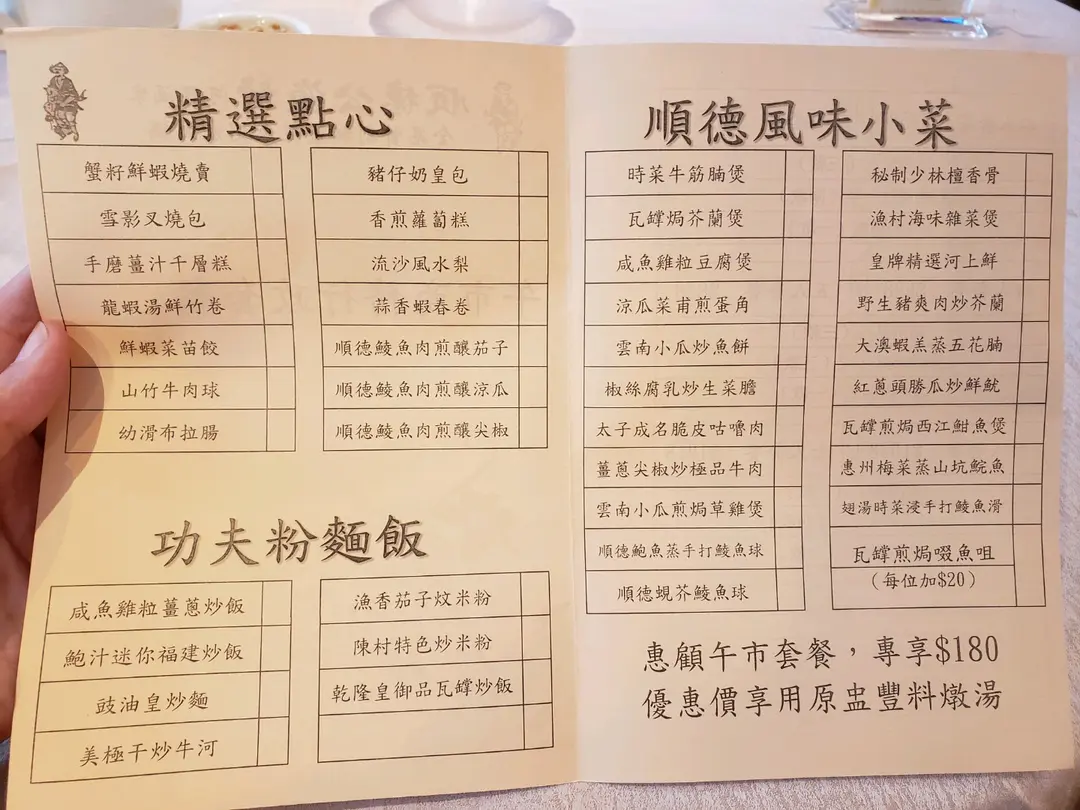 精選點心
蟹籽鮮蝦燒賣
雪影叉燒包
手磨薑汁千層糕
龍蝦湯鮮竹卷
鮮蝦菜苗餃
山竹牛肉球
幼滑布拉腸
豬仔奶皇包
香煎蘿蔔糕
流沙風水梨
蒜香蝦春卷
順德鯪魚肉煎釀茄子
順德鯪魚肉煎釀涼瓜
順德鯪魚肉煎釀尖椒
功夫粉麵飯
咸魚雞粒薑蔥炒飯
鮑汁迷你福建炒飯
豉油皇炒麵
美極干炒牛河
漁香茄子炆米粉
陳村特色炒米粉
乾隆皇御品瓦罉炒飯
順德風味小菜
時菜牛筋腩煲
瓦罉焗芥蘭煲
咸魚雞粒豆腐煲
涼瓜菜甫煎蛋角
雲南小瓜炒魚餅
椒絲腐乳炒生菜膽
太子成名脆皮咕嚕肉
薑蔥尖椒炒極品牛肉
雲南小瓜煎焗草雞煲
順德鮑魚蒸手打鯪魚球
順德蜆芥鯪魚球
秘制少林檀香骨
漁村海味雜菜煲
皇牌精選河上鮮
野生豬爽肉炒芥蘭
大澳蝦羔蒸五花腩
紅蔥頭勝瓜炒鮮魷
瓦罉煎焗西江魽魚煲
惠州梅菜蒸山坑鯇魚
翅湯時菜浸手打鯪魚滑
瓦罉煎焗啜魚咀
(每位加$20)
惠顧午市套餐，專享$180
優惠價享用原盅豐料燉湯